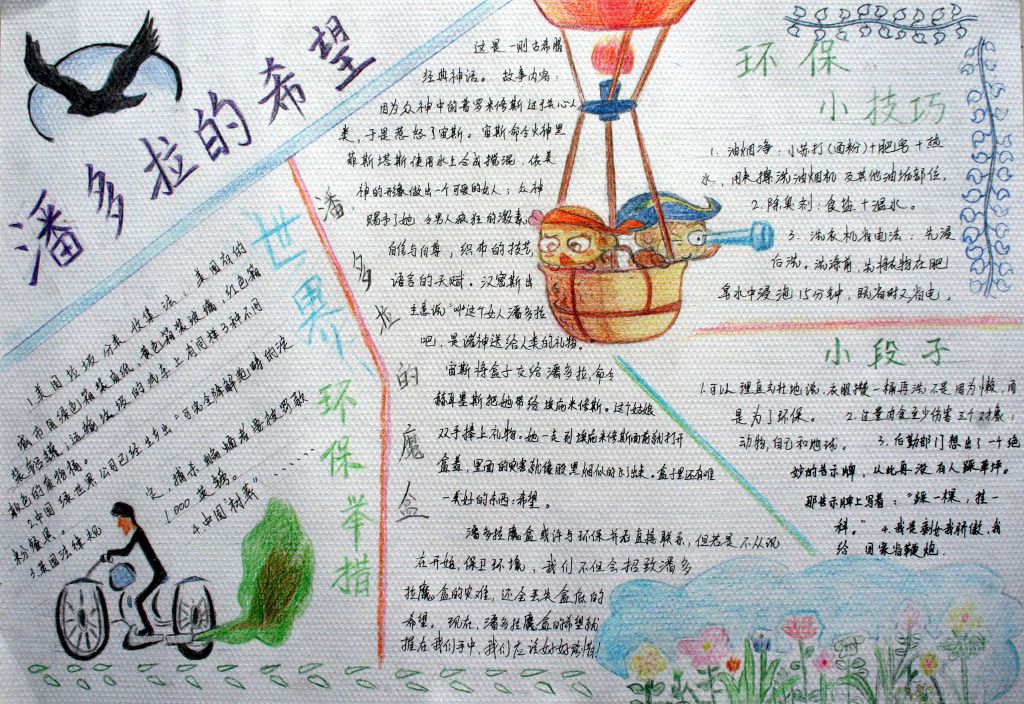 潘多拉的希望
世界环保举措
1.美国垃圾分类收集法：美国有的
城市用绿色箱装废纸，黄色箱装玻璃，红色箱
装轻罐，运输垃圾的汽车上有同样3种不同
颜色的废物桶。
2.中国绿世界公司已经生产出“可完全降解泡啫的决
粉餐具。
3.英国法律规
定，捕杀蝙蝠者要被罚款
1000英镑。
4.中国“树葬”
潘多拉的魔盒
这是一则古希腊
经典神话。故事内容：
因为众神中的普罗米修斯过于关心人
类，于是惹怒了宙斯。宙斯命令火神黑
菲斯塔斯使用水土合成搅混，依美
神的形像做出一个可爱的女人；众神
赐予了她令男人疯狂的激素、
自信与自尊，织布的技艺，
语言的天赋。汉密斯出
主意说“叫这个女人潘多拉
吧，是诸神送给人类的礼物。”
宙斯将盒子交给潘多拉，命令
赫耳墨斯把她带给埃庇米修斯。这个姑娘
双手捧上礼物。她一走到埃庇米修斯面前就打开
盒盖，里面的灾害就像股黑烟似的飞出来。盒子里还有唯
一美好的东西：希望。
潘多拉魔盒或许与环保并无直接联系，但若是不从现
在开始，保卫环境，我们不但会招致潘多
拉魔盒的灾难，还会丢失盒底的
希望。现在，潘多拉魔盒的希望就
握在我们手中，我们应该好好珍惜！
环保
小技巧
1.油烟净：小苏打（面粉）+肥皂+热
水，用来擦洗油烟机及其他油垢部位。
2.除臭剂：食盐+温水。
3.洗衣机省电法：先浸
后洗。洗涤前，先将衣物在肥
皂水中浸泡15分钟，既省时又省电。
小段子
1.可以理直气壮地说：衣服攒一桶再洗不是因为懒，而
是为了环保。 2.过量肉食至少伤害三个对象：
动物，自己和地球。 3.后勤部门想出了一个绝
妙的告示牌，从此再没有人踩草坪。
那告示牌上写着：“踩一棵，挂一
科。” 4.我是剩女我骄傲，我
给国家省鞭炮.